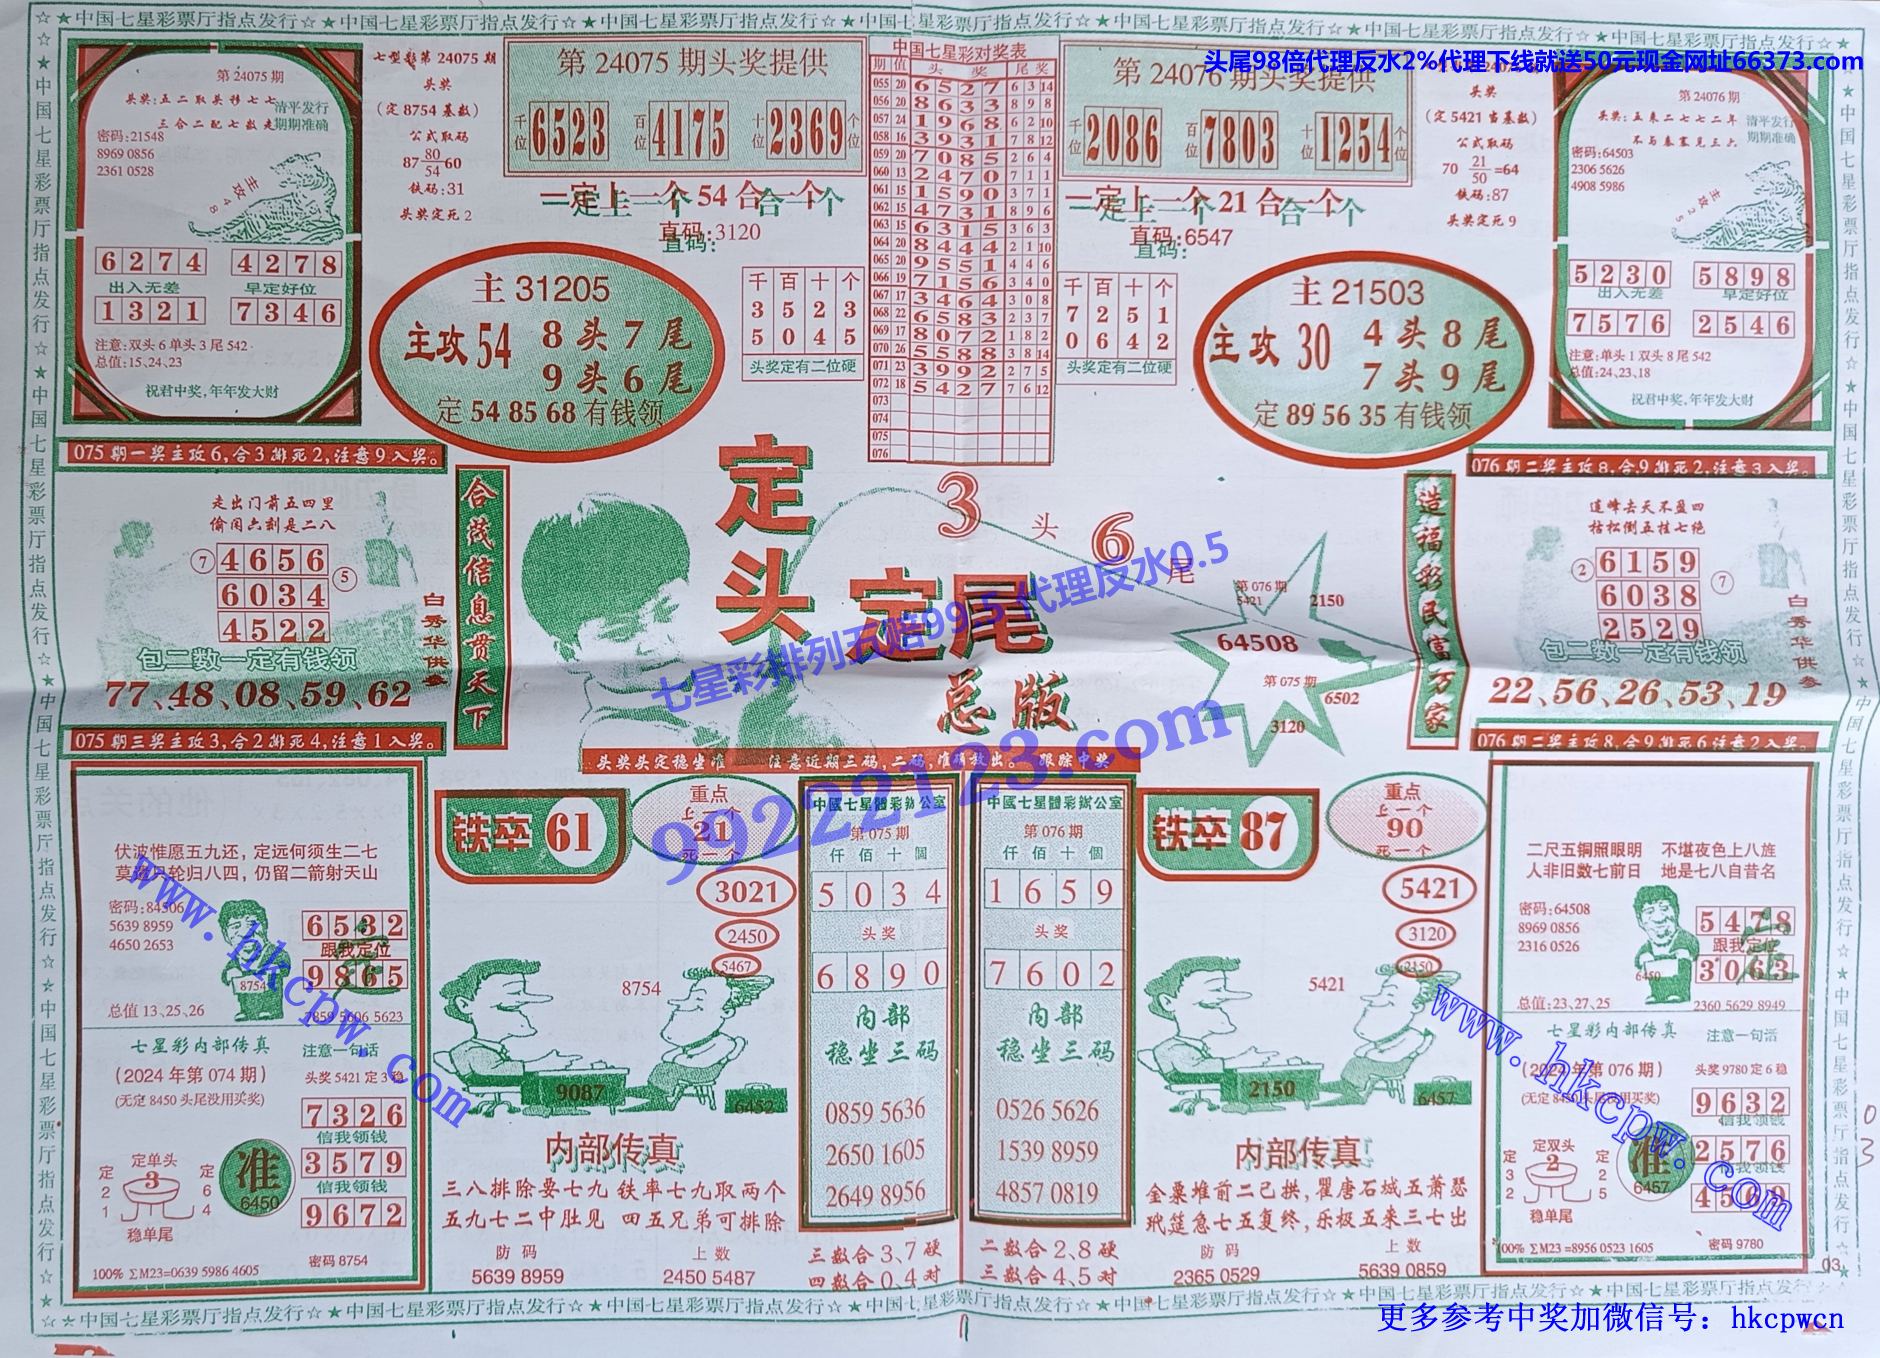 ☆★中国七星彩票厅指点发行☆★中国七星彩票厅指点发行☆★中国七星彩票厅指点发行☆★中国七星彩票厅指点发行☆★中国七星彩票厅指点发行☆★
头尾98倍代理反水2%代理下线就送50元现金网址66373.com
第 24075 期
头奖:五二取头移七七
三合二配七数走
清平发行
期期准确
密码:21548
8969 0856
2361 0528
主攻48
6274 4278
出入无差 早定好位
1321 7346
注意:双头 6 单头 3 尾 542
总值:15、24、23
祝君中奖,年年发大财
七型彩第 24075 期
头奖
(定 8754 基数)
公式取码
87 80/54 60
铁码:31
头奖定死 2
第 24075 期头奖提供
千位 6523 百位 4175 十位 2369 个位
一定上一个 54 合一个
直码:3120
主 31205
主攻 54
8 头 7 尾
9 头 6 尾
定 54 85 68 有钱领
千百十个
3523
5045
头奖定有二位硬
中国七星彩对奖表
期 值 头奖 尾奖
055 20 6527 6 3 14
056 20 8633 8 9 8
057 24 1968 6 2 10
058 16 3931 7 8 12
059 20 7085 2 6 4
060 13 2470 7 1 1
061 15 1590 3 7 1
062 15 4731 8 9 6
063 15 6315 3 6 3
064 20 8444 2 1 10
065 20 9551 4 4 6
066 19 7156 3 4 0
067 17 3464 3 0 8
068 22 6583 2 3 7
069 17 8072 1 8 2
070 26 5588 3 8 14
071 23 3992 2 7 5
072 18 5427 7 6 12
073
074
075
076
第 24076 期头奖提供
千位 2086 百位 7803 十位 1254 个位
一定上一个 21 合一个
直码:6547
千百十个
7251
0642
头奖定有二位硬
主 21503
主攻 30
4 头 8 尾
7 头 9 尾
定 89 56 35 有钱领
头奖
(定 5421 当基数)
公式取码
70 21/50 =64
铁码:87
头奖定死 9
第 24076 期
头奖:五来二七七二年
不与秦塞见三六
清平发行
期期准确
密码:64503
2306 5626
4908 5986
主攻25
5230 5898
出入无差 早定好位
7576 2546
注意:单头 1 双头 8 尾 542
总值:24、23、18
祝君中奖,年年发大财
075 期一奖主攻 6,合 3 排死 2,注意 9 入奖。
走出门前五四里
偷闲六刻是二八
⑦ 4656 ⑤
6034
4522
包二数一定有钱领
77、48、08、59、62
白秀华供参
合茂信息贯天下
定头定尾
总版
3 头 6 尾
第 076 期
5421
2150
64508
第 075 期
6502
3120
造福彩民富万家
076 期二奖主攻 8,合 9 排死 2,注意 3 入奖。
连峰去天不盈四
枯松倒五挂七绝
② 6159 ⑦
6038
2529
包二数一定有钱领
22、56、26、53、19
白秀华供参
七星彩排列五赔99.5 代理反水0.5
99222123.com
头奖头定稳坐准 注意近期三码,二码,准确放出。 跟踪中奖
075 期三奖主攻 3,合 2 排死 4,注意 1 入奖。
伏波惟愿五九还,定远何须生二七
莫道只轮归八四,仍留二箭射天山
密码:84506
5639 8959
4650 2653
8754
6532
跟我定位
9865
总值 13、25、26
7859 5606 5623
七星彩内部传真
注意一句话
(2024 年第 074 期)
头奖 5421 定 3 稳
(无定 8450 头尾没用买奖)
7326
信我领钱
3579
信我领钱
9672
定单头
3
定 2 1
定 6 4
稳单尾
准
6450
密码 8754
100% ΣM23=0639 5986 4605
铁卒 61
重点
上一个
21
死一个
3021
2450
5467
8754
9087
6452
内部传真
三八排除要七九 铁率七九取两个
五九七二中肚见 四五兄弟可排除
防码 上数
5639 8959 2450 5487
中國七星體彩辦公室
第 075 期
仟佰十個
5034
头奖
6890
内部
稳坐三码
0859 5636
2650 1605
2649 8956
三数合 3、7 硬
四数合 0、4 对
中國七星體彩辦公室
第 076 期
仟佰十個
1659
头奖
7602
内部
稳坐三码
0526 5626
1539 8959
4857 0819
二数合 2、8 硬
三数合 4、5 对
铁卒 87
重点
上一个
90
死一个
5421
3120
2150
5421
2150
6457
内部传真
金粟堆前二己拱,瞿唐石城五萧瑟
玳筵急七五复终,乐极五来三七出
防码 上数
2365 0529 5639 0859
076 期二奖主攻 8,合 9 排死 6 注意 2 入奖。
二尺五铜照眼明 不堪夜色上八旌
人非旧数七前日 地是七八自昔名
密码:64508
8969 0856
2316 0526
6450
5478
跟我定位
3063
总值:23、27、25
2360 5629 8949
七星彩内部传真
注意一句话
(2024 年第 076 期)
头奖 9780 定 6 稳
(无定 8450 头尾没用买奖)
9632
信我领钱
2576
信我领钱
4569
定双头
2
定 3 2
定 2 5
稳单尾
准
6457
密码 9780
100% ΣM23=8956 0523 1605
03
www.hkcpw.com
www.hkcpw.com
☆★中国七星彩票厅指点发行☆★中国七星彩票厅指点发行☆★中国七星彩票厅指点发行☆★中国七星彩票厅指点发行☆★中国七星彩票厅指点发行☆★
更多参考中奖加微信号：hkcpwcn